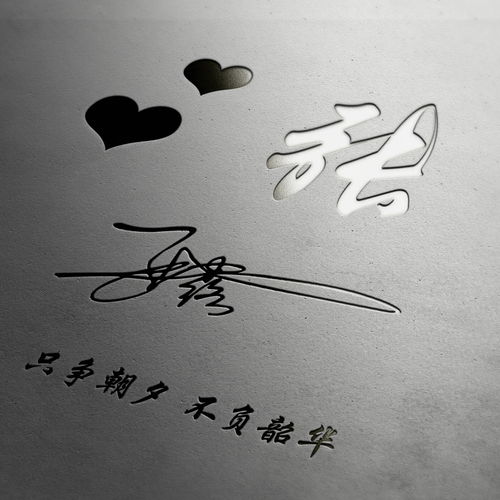 张
只争朝夕 不负韶华